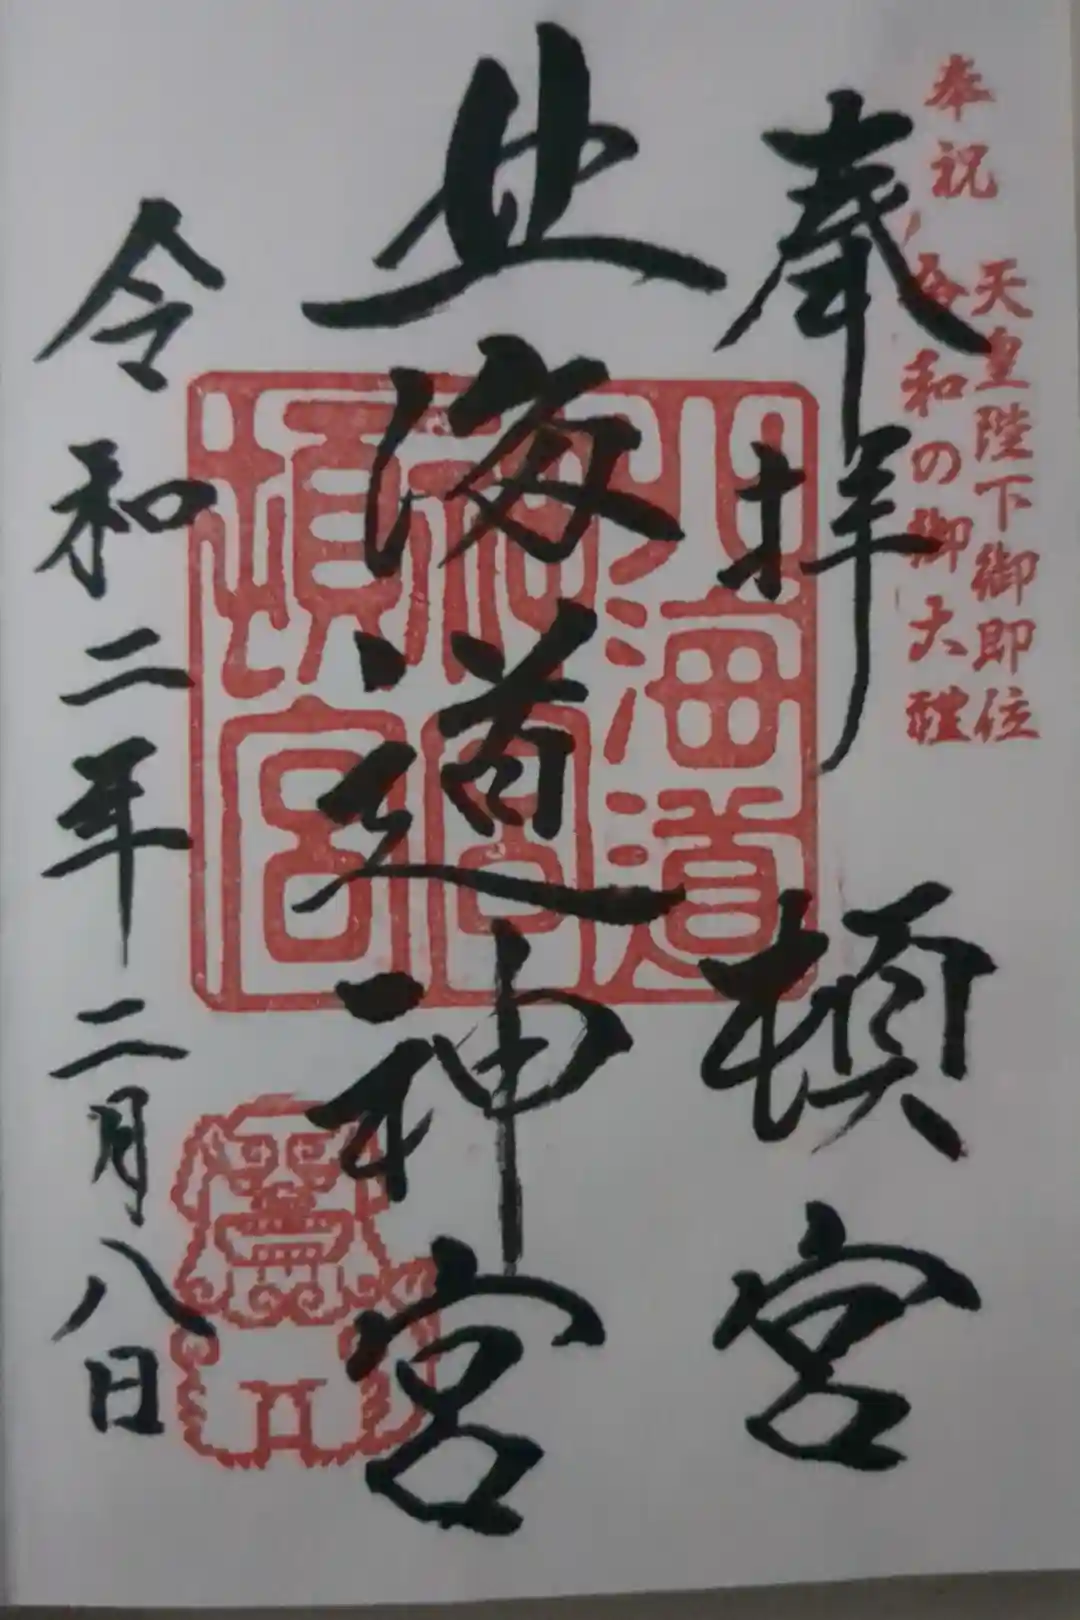 奉祝 天皇陛下御即位
令和の御大禮
奉拝 頓宮
北海道神宮
北海道
神宮
頓宮
令和二年二月八日